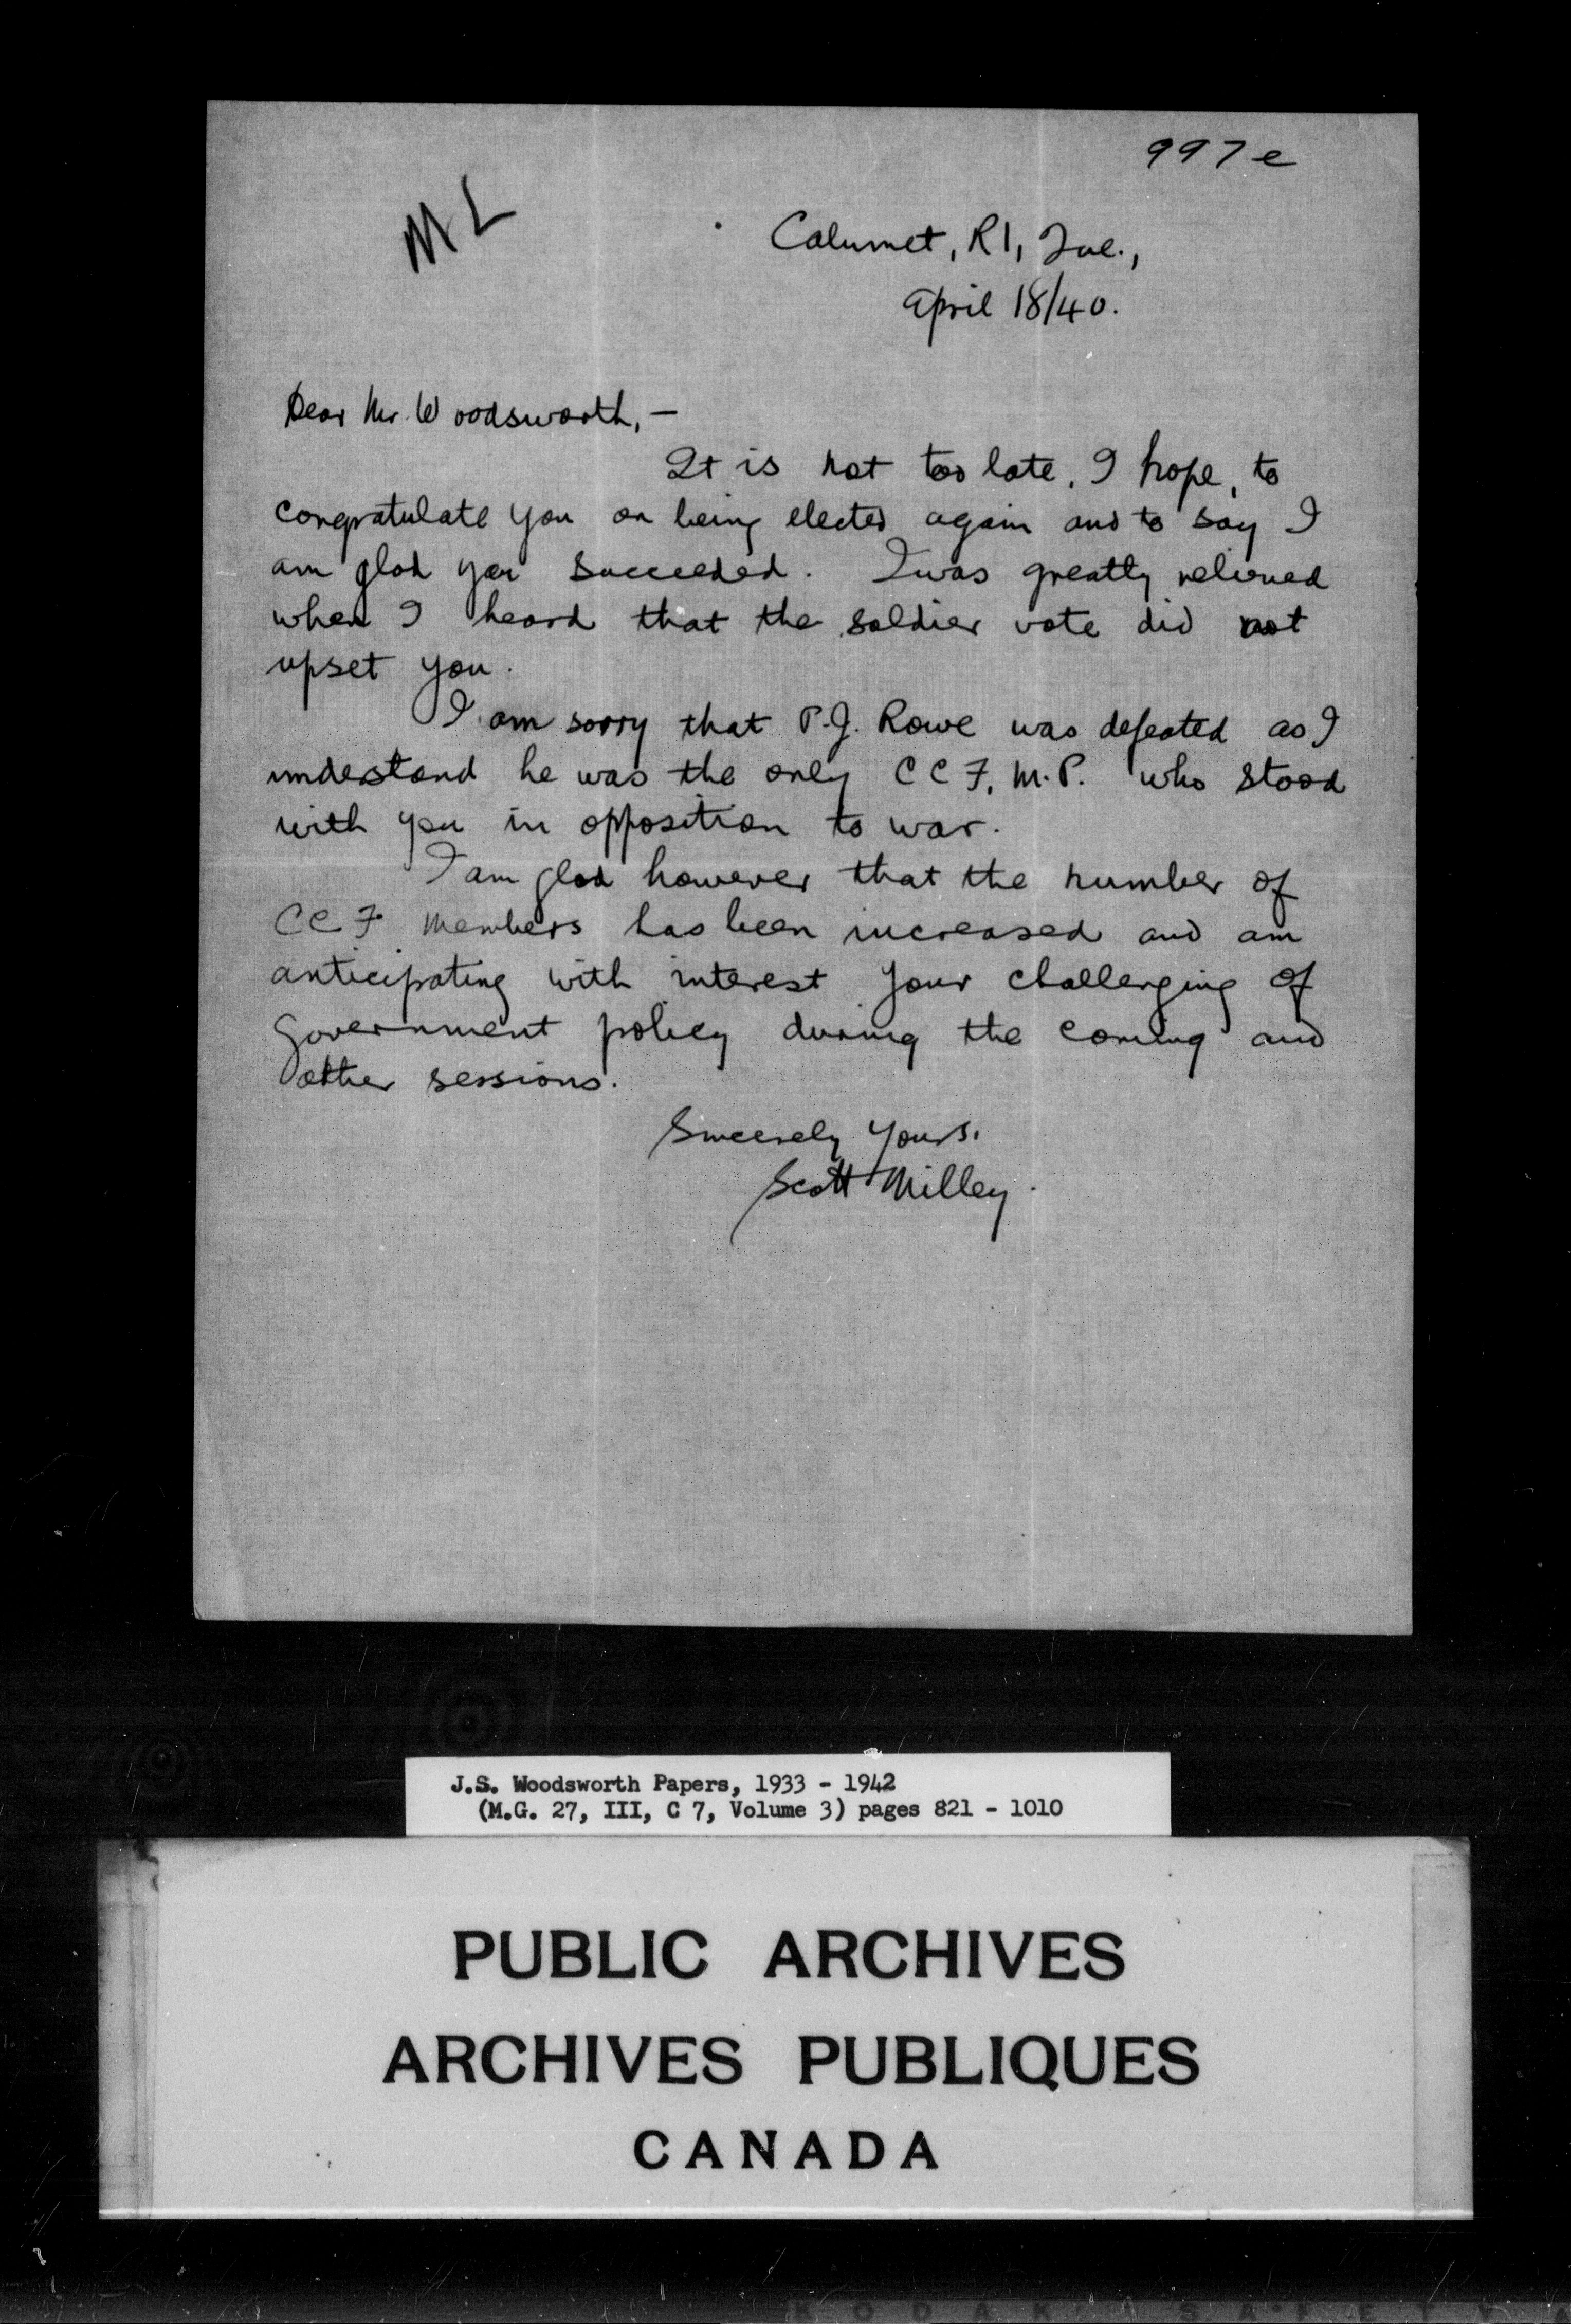 997e
ML
Calumet, R1, Que.,
April 18/40.
Dear Mr. Woodsworth, —
It is not too late, I hope, to
congratulate you on being elected again and to say I
am glad you succeeded. I was greatly relieved
when I heard that the soldier vote did not
upset you.
I am sorry that P.J. Rowe was defeated as I
understand he was the only CCF, M.P. who stood
with you in opposition to war.
I am glad however that the number of
CCF members has been increased and am
anticipating with interest your challenging of
Government policy during the coming and
other sessions.
Sincerely yours,
Scott Milley.
J.S. Woodsworth Papers, 1933 - 1942
(M.G. 27, III, C 7, Volume 3) pages 821 - 1010
PUBLIC ARCHIVES
ARCHIVES PUBLIQUES
CANADA
KODAK SAFETY